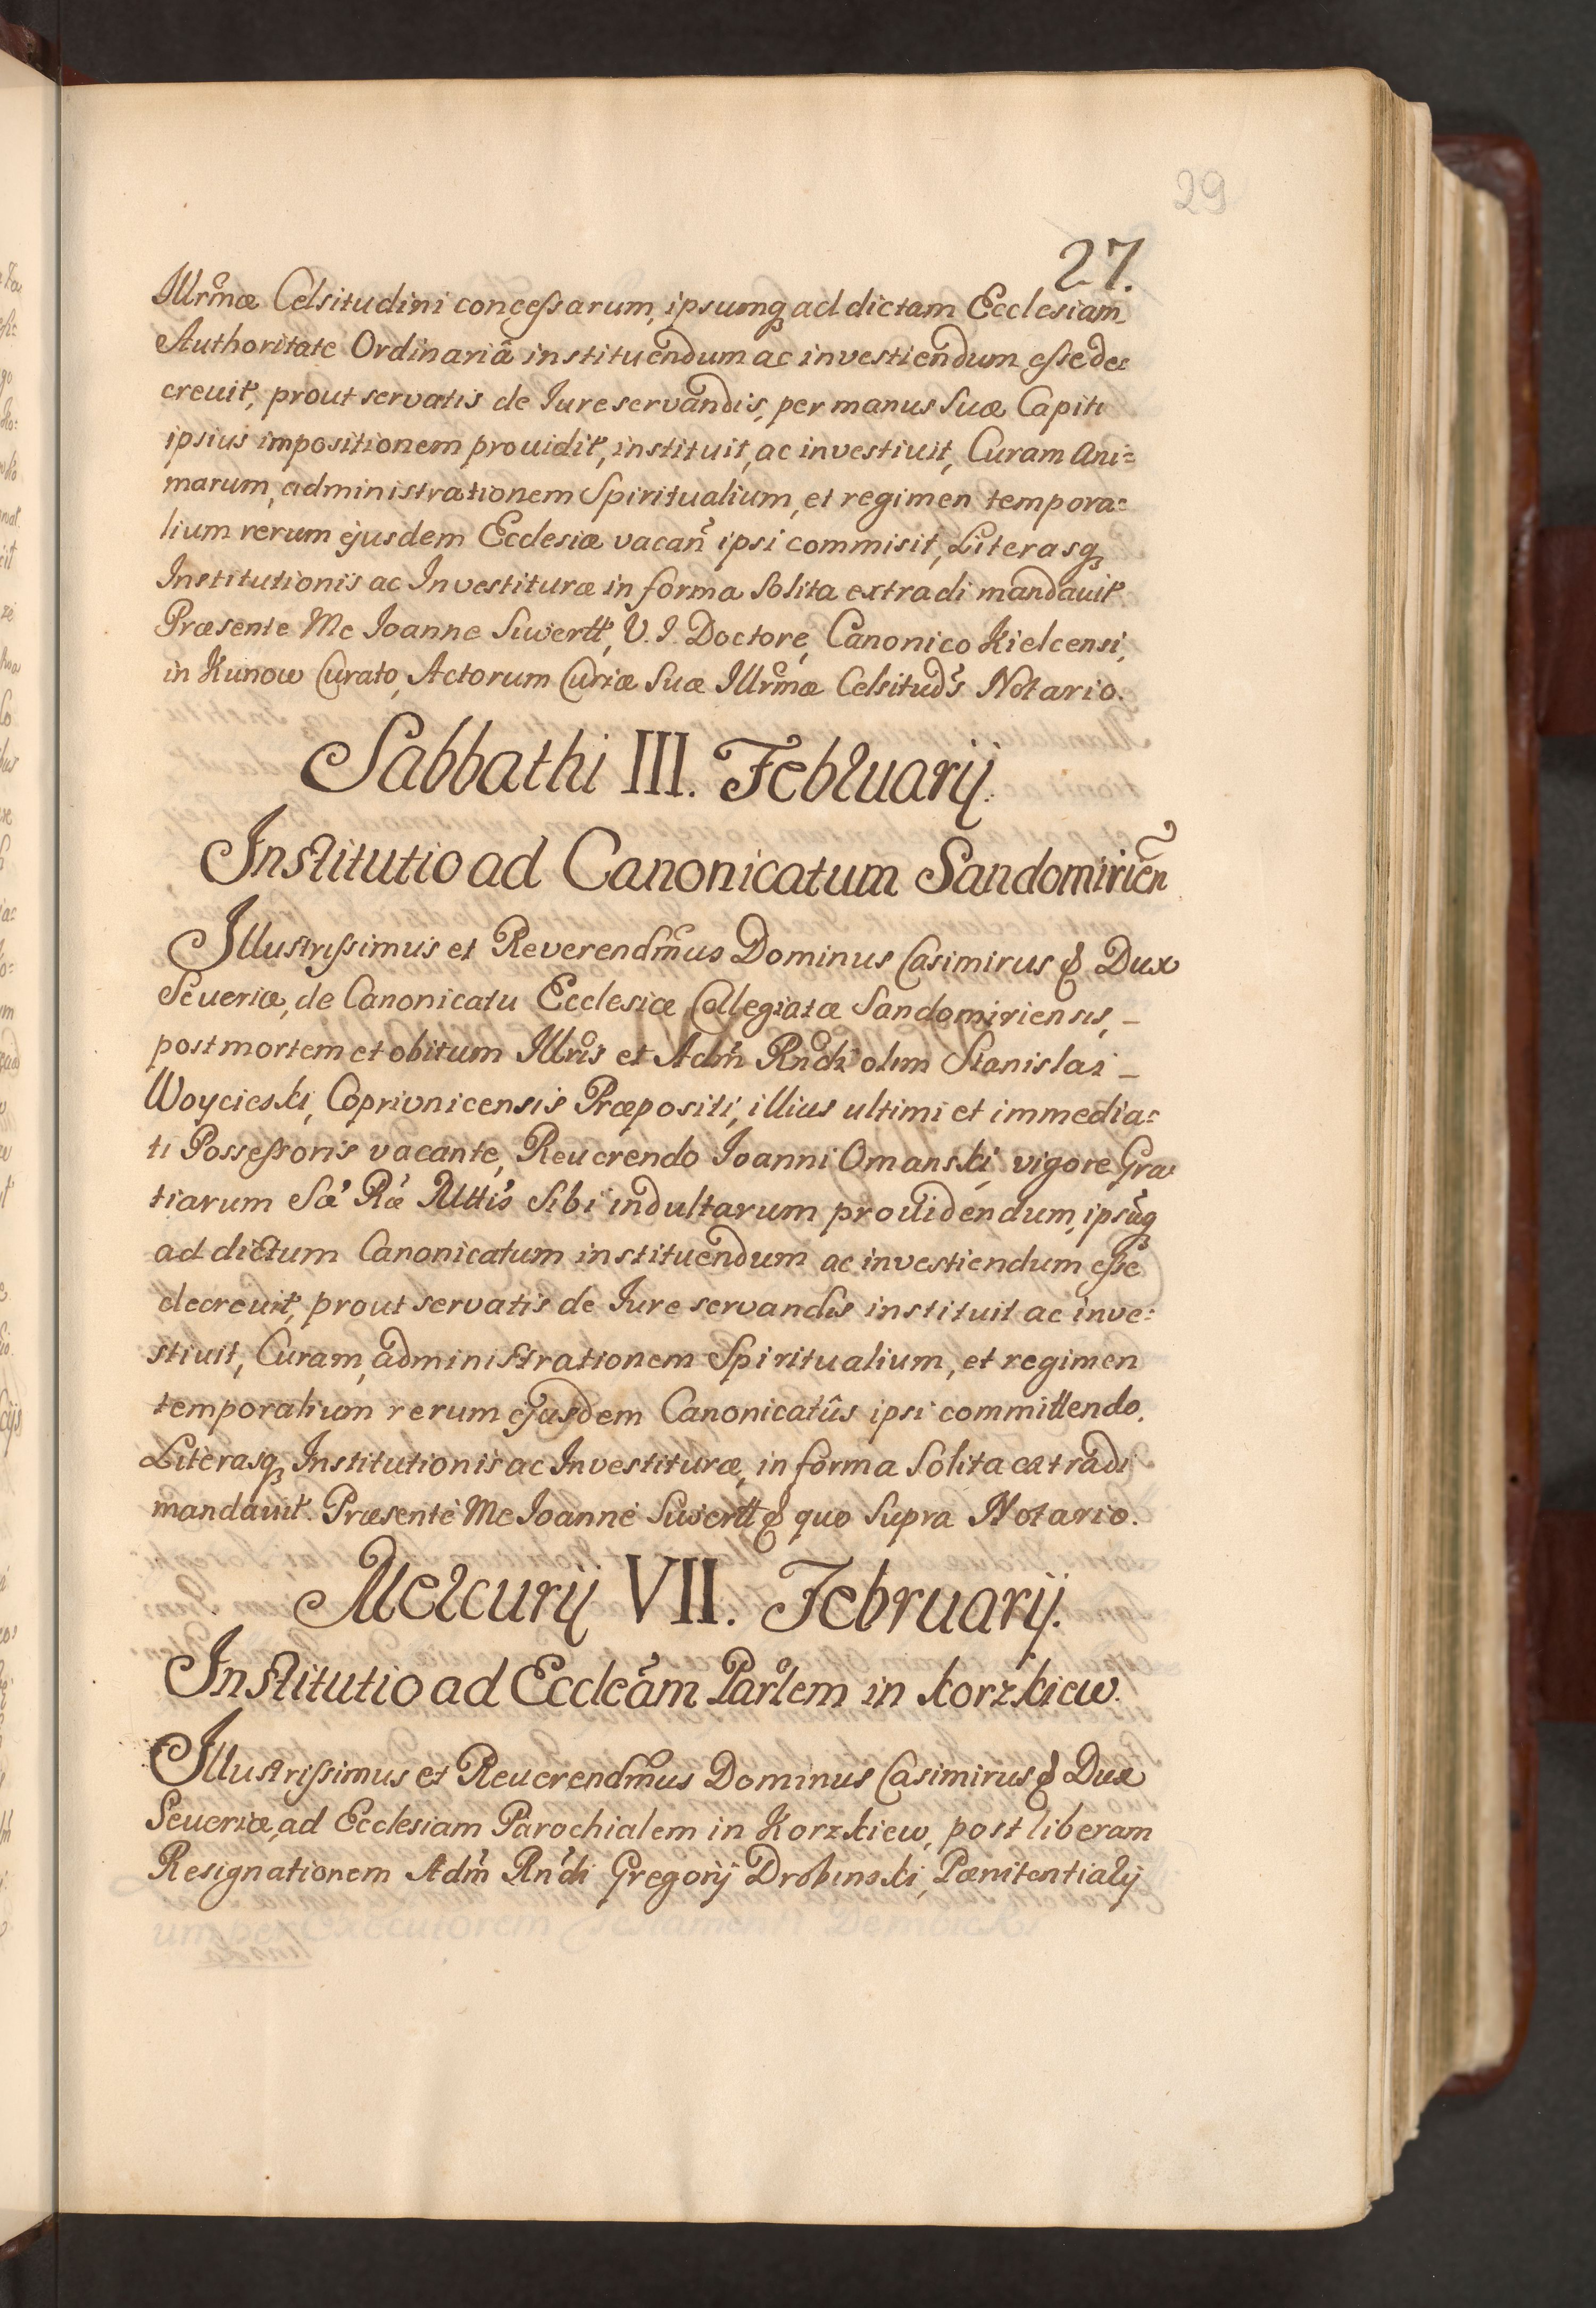 29
27.
Illrmæ Celsitudini concessarum, ipsumq ad dictam Ecclesiam
Authoritate Ordinariâ instituendum ac investiendum esse de=
creuit, prout servatis de Iure servandis, per manus Suæ Capiti
ipsius impositionem prouidit, instituit, ac investiuit, Curam Ani=
marum, administrationem Spiritualium, et regimen tempora=
lium rerum ejusdem Ecclesiæ vacan̄ ipsi commisit, Literasq
Institutionis ac Investituræ in forma Solita extradi mandauit.
Præsente Me Ioanne Suwertt, V. I. Doctore, Canonico Kielcensi,
in Kunow Curato, Actorum Curiæ Suæ Illrmæ Celsitud's Notario.
Sabbathi III. Februarij.
Institutio ad Canonicatum Sandomirien̄
Illustrissimus et Reverendmus Dominus Casimirus & Dux
Seueriæ, de Canonicatu Ecclesiæ Collegiatæ Sandomiriensis, _
post mortem et obitum Illris et Adm Rndi olim Stanislai _
Woycieski, Coprivnicensis Præpositi, illius ultimi et immedia=
ti Possessoris vacante, Reuerendo Ioanni Omanski, vigore Gra=
tiarum Sæ Ræ Mttis Sibi indultarum prouidendum, ipsūq
ad dictum Canonicatum instituendum ac investiendum esse
decreuit, prout servatis de Iure servandis instituit ac inve=
stiuit, Curam, administrationem Spiritualium, et regimen
temporalium rerum ejusdem Canonicatûs ipsi committendo.
Literasq Institutionis ac Investituræ, in forma Solita extradi
mandauit. Præsente Me Ioanne Suwertt & quo Supra Notario.
Mercurij VII. Februarij.
Institutio ad Eccleām Parlem in Korzkiew.
Illustrissimus et Reuerendmus Dominus Casimirus & Dux
Seueriæ, ad Ecclesiam Parochialem in Korzkiew, post liberam
Resignationem Adm Rndi Gregorij Drobinski, Pœnitentialij